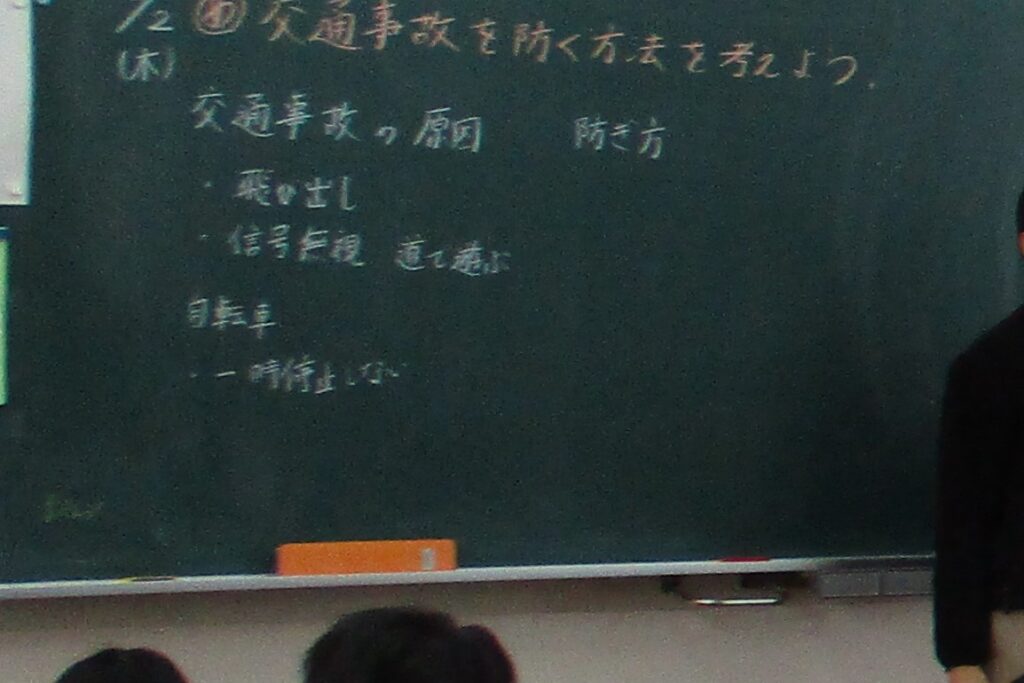 /2 め 交通事故を防ぐ方法を考えよう.
(木)
交通事故の原因 防ぎ方
・飛び出し
・信号無視 道で遊ぶ
自転車
・一時停止しない